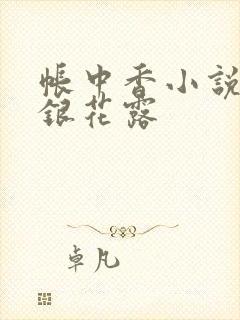 帳中香小說
銀花露
卓凡